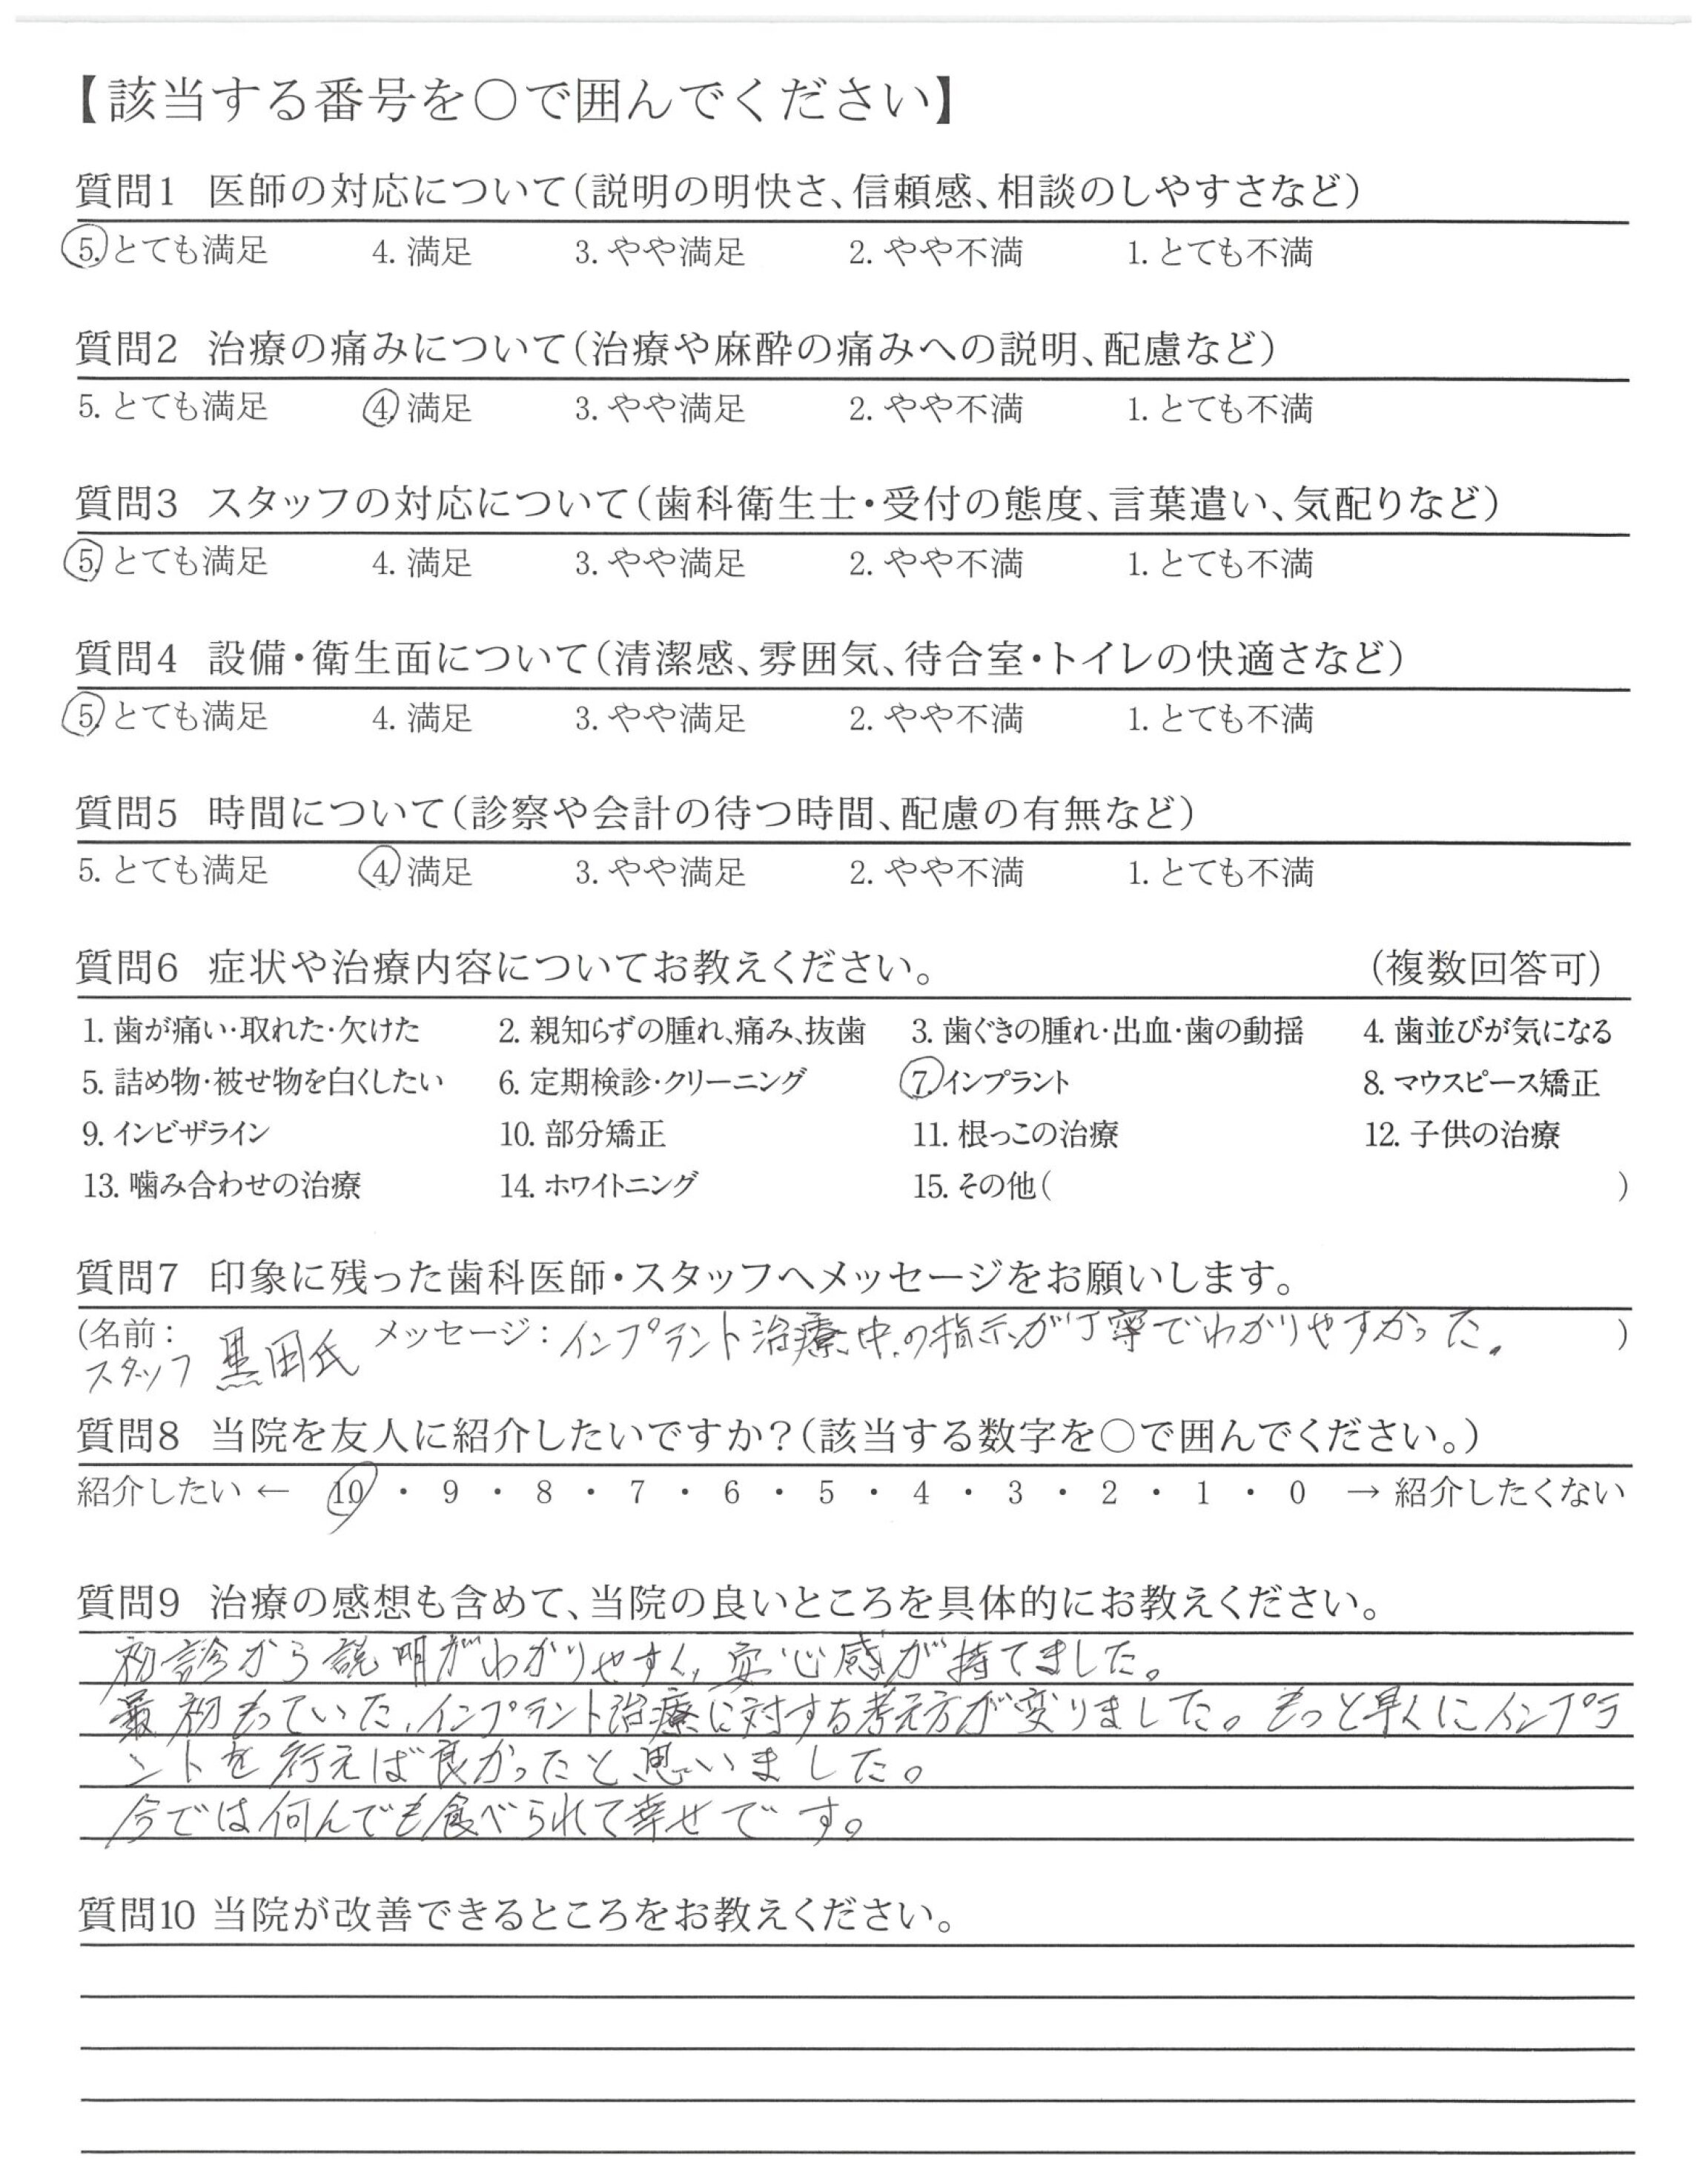 【該当する番号を〇で囲んでください】
質問1 医師の対応について(説明の明快さ、信頼感、相談のしやすさなど)
5. とても満足 4. 満足 3. やや満足 2. やや不満 1. とても不満
質問2 治療の痛みについて(治療や麻酔の痛みへの説明、配慮など)
5. とても満足 4. 満足 3. やや満足 2. やや不満 1. とても不満
質問3 スタッフの対応について(歯科衛生士・受付の態度、言葉遣い、気配りなど)
5. とても満足 4. 満足 3. やや満足 2. やや不満 1. とても不満
質問4 設備・衛生面について(清潔感、雰囲気、待合室・トイレの快適さなど)
5. とても満足 4. 満足 3. やや満足 2. やや不満 1. とても不満
質問5 時間について(診察や会計の待つ時間、配慮の有無など)
5. とても満足 4. 満足 3. やや満足 2. やや不満 1. とても不満
質問6 症状や治療内容についてお教えください。 (複数回答可)
1. 歯が痛い・取れた・欠けた 2. 親知らずの腫れ、痛み、抜歯 3. 歯ぐきの腫れ・出血・歯の動揺 4. 歯並びが気になる
5. 詰め物・被せ物を白くしたい 6. 定期検診・クリーニング 7. インプラント 8. マウスピース矯正
9. インビザライン 10. 部分矯正 11. 根っこの治療 12. 子供の治療
13. 噛み合わせの治療 14. ホワイトニング 15. その他( )
質問7 印象に残った歯科医師・スタッフへメッセージをお願いします。
(名前: メッセージ: インプラント治療中の指示が丁寧でわかりやすかった。 )
スタッフ 黒田氏
質問8 当院を友人に紹介したいですか?(該当する数字を〇で囲んでください。)
紹介したい ← 10 ・ 9 ・ 8 ・ 7 ・ 6 ・ 5 ・ 4 ・ 3 ・ 2 ・ 1 ・ 0 → 紹介したくない
質問9 治療の感想も含めて、当院の良いところを具体的にお教えください。
初診から説明がわかりやすく、安心感が持てました。
最初もっていた、インプラント治療に対する考え方が変りました。もっと早くにインプラ
ントを行えば良かったと思いました。
今では何んでも食べられて幸せです。
質問10 当院が改善できるところをお教えください。